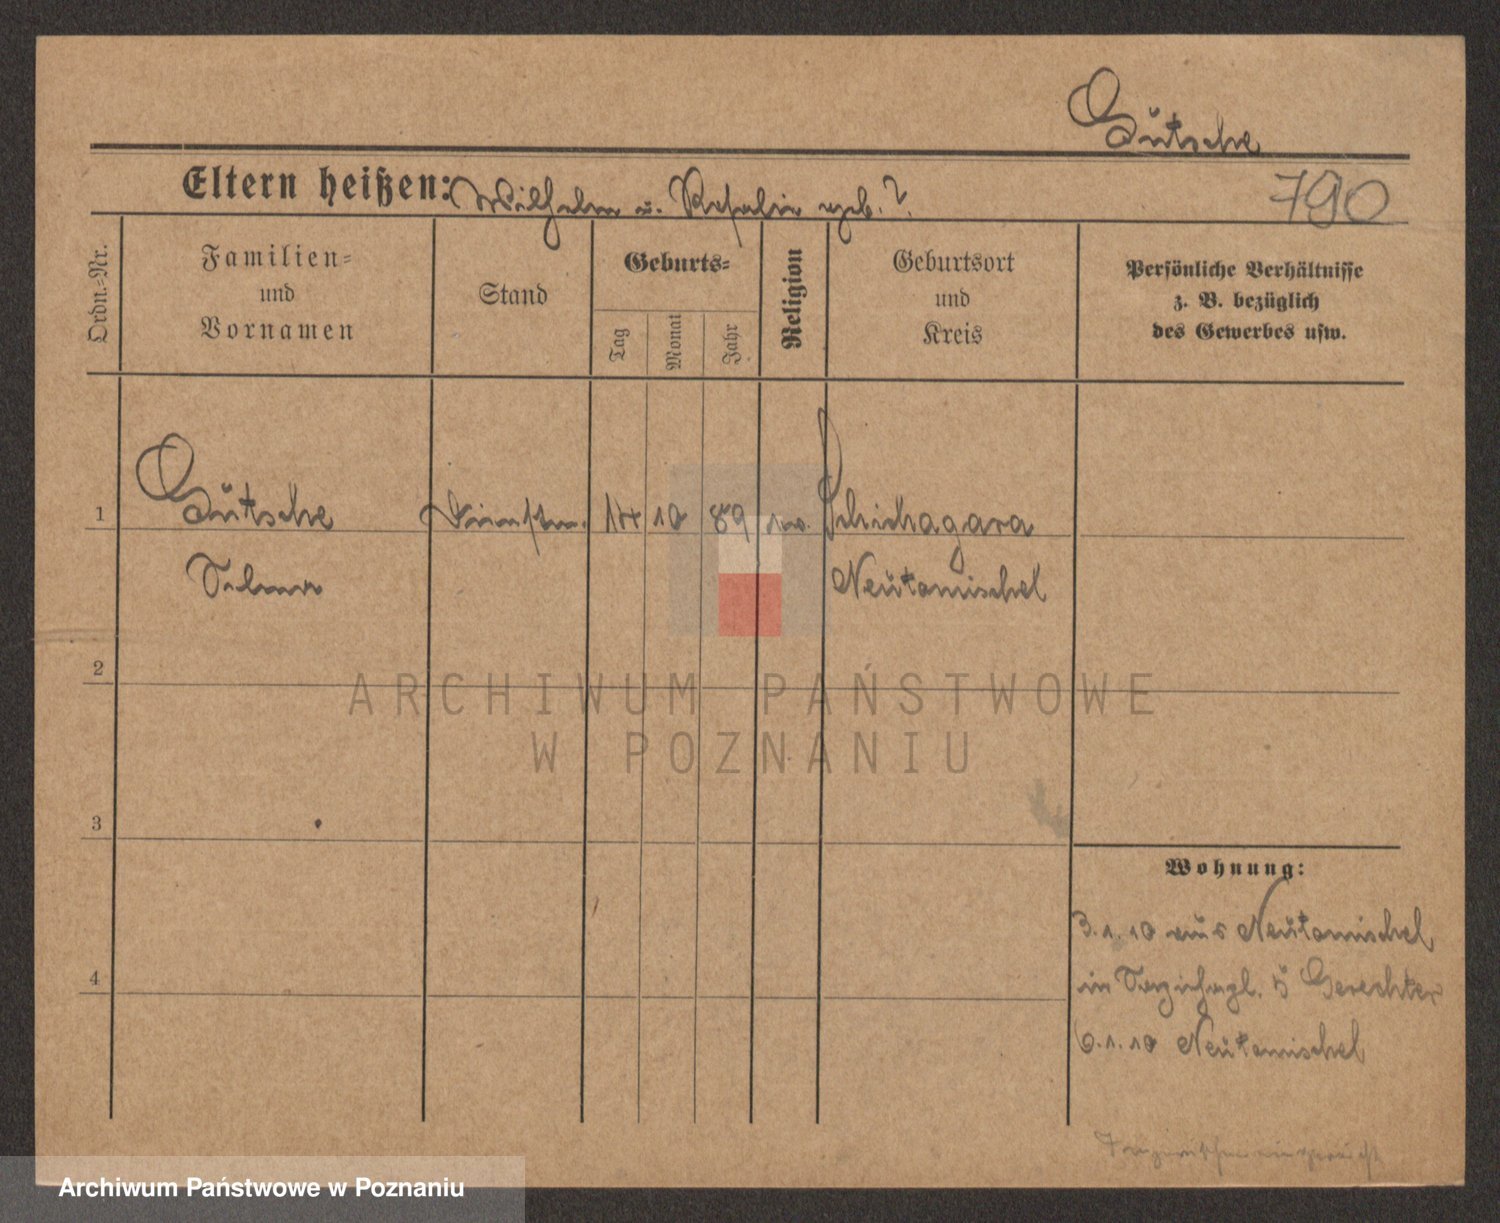 Gütsche
Eltern heißen: Wilhelm u. Rosalie geb. ?
790
Ordn.-Nr.
Familien-
und
Vornamen
Stand
Geburts-
Tag
Monat
Jahr
Religion
Geburtsort
und
Kreis
Persönliche Verhältnisse
z. B. bezüglich
des Gewerbes usw.
1
Gütsche
14 10 89 ev. Schichagora
Selma
Neutomischel
2
ARCHIWUM PAŃSTWOWE
W POZNANIU
3
Wohnung:
3.1.10 aus Neutomischel
4
in 5 Gerechter
6.1.10 Neutomischel
Archiwum Państwowe w Poznaniu